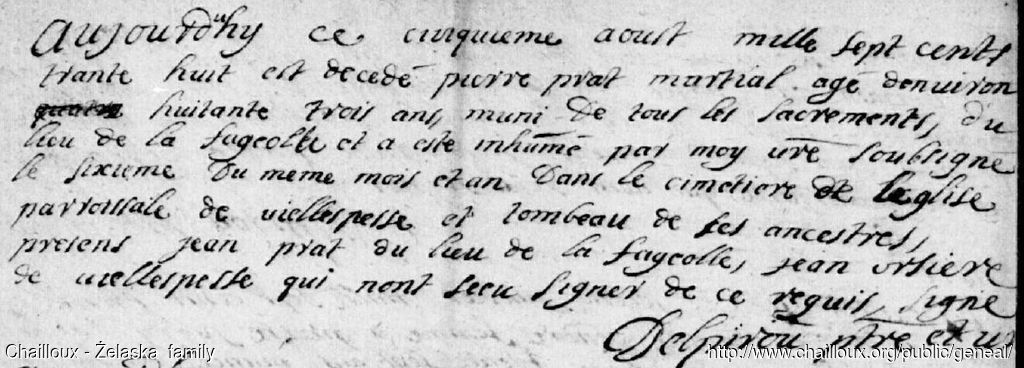 aujourdhuy ce cinquieme aoust mille sept cents
trante huit est decedé pierre prat martial agé denuiron
quatre huitante trois ans, muni de tous les sacrements, du
lieu de la fageolle et a esté inhumé par moy vre soubsigné
le sixieme du meme mois et an dans le cimetiere de leglise
parroissale de viellespesse et tombeau de ses ancestres,
presens jean prat du lieu de la fageolle, jean vrsiere
de viellespesse qui nont sceu signer de ce requis, signé
Delpirou ptre et
Chailloux - Żelaska family
http://www.chailloux.org/public/geneal/